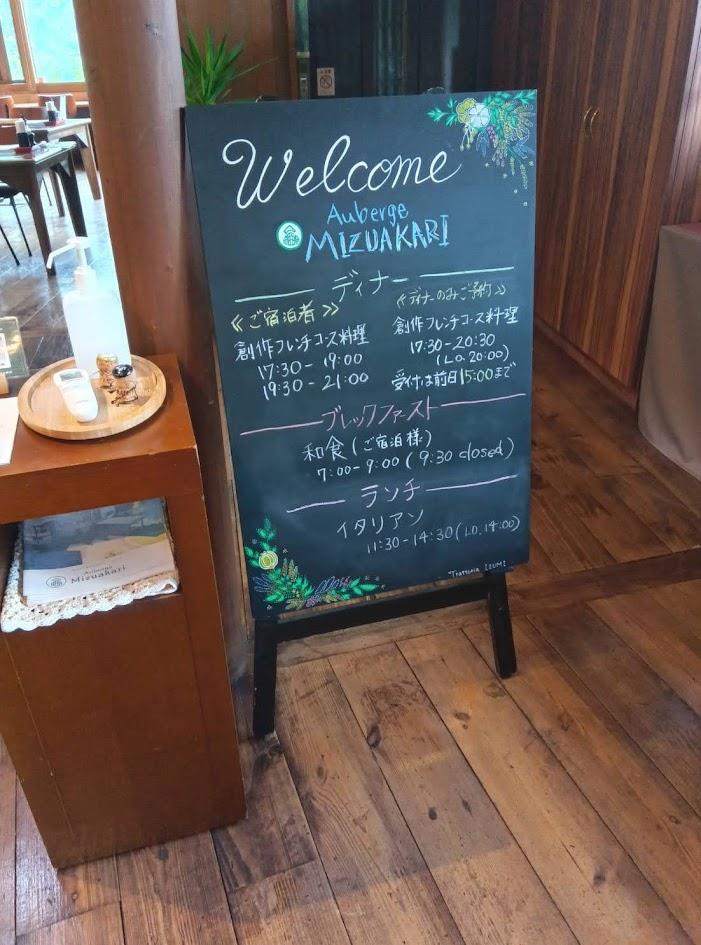 Welcome
Auberge
MIZUAKARI
ディナー
《ご宿泊者》
創作フレンチコース料理
17:30 - 19:00
19:30 - 21:00
《ディナーのみご予約》
創作フレンチコース料理
17:30-20:30
(L.O.20:00)
受付は前日15:00まで
ブレックファースト
和食(ご宿泊様)
7:00-9:00(9:30 closed)
ランチ
イタリアン
11:30-14:30(L.O.14:00)
Trattoria IZUMI
Auberge
Mizuakari